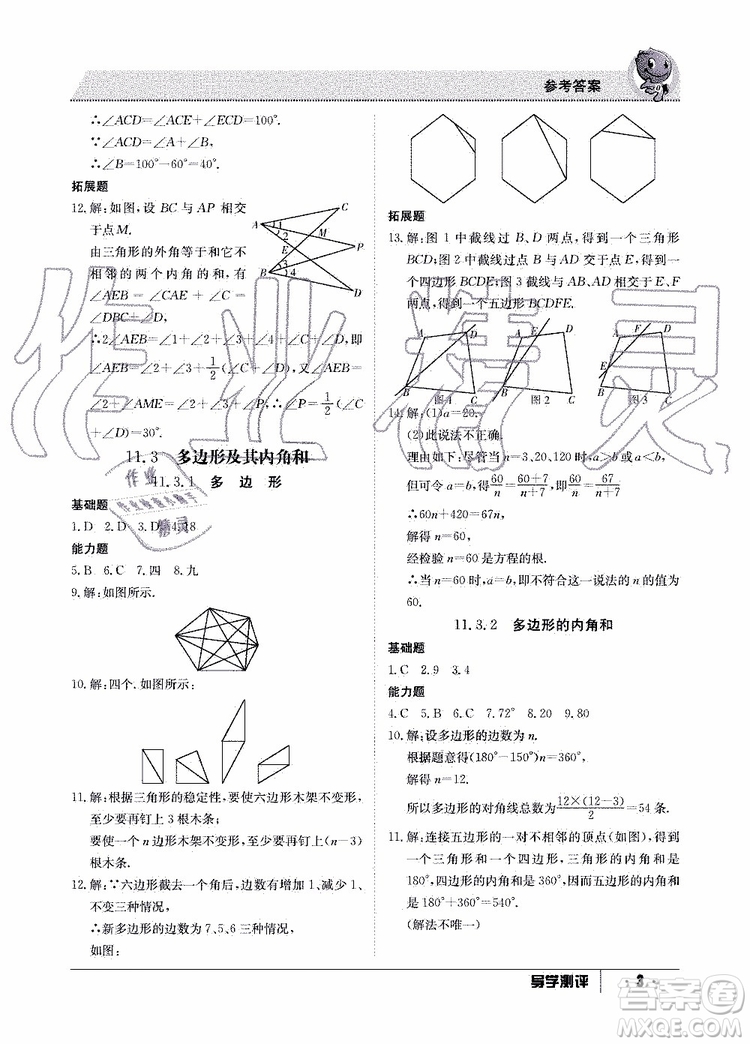 参考答案
∴∠ACD=∠ACE+∠ECD=100°.
∵∠ACD=∠A+∠B,
∴∠B=100°-60°=40°.
拓展题
12.解:如图,设 BC 与 AP 相交
于点M.
由三角形的外角等于和它不
相邻的两个内角的和,有
∠AEB=∠CAE+∠C=
∠DBC+∠D,
∴2∠AEB=∠1+∠2+∠3+∠4+∠C+∠D,即
∠AEB=∠1+∠3+1/2(∠C+∠D),又∠AEB=∠1
A
C
M
P
E
B
D
1
2
3
4
+∠2+∠AME=∠2+∠3+∠P,∴∠P=1/2(∠C
+∠D)=30°.
11.3 多边形及其内角和
11.3.1 多 边 形
基础题
1.D 2.D 3.D 4.18
能力题
5.B 6.C 7.四 8.九
9.解:如图所示.
10.解:四个.如图所示:
11.解:根据三角形的稳定性,要使六边形木架不变形,
至少要再钉上3根木条;
要使一个n边形木架不变形,至少要再钉上(n-3)
根木条.
12.解:∵六边形截去一个角后,边数有增加1、减少1、
不变三种情况,
∴新多边形的边数为7、5、6三种情况.
如图:
拓展题
13.解:图1中截线过B、D两点,得到一个三角形
BCD;图2中截线过B点,与AD交于点E,得到一
个四边形BCDE;图3中截线与AD、AB交于E、F
两点,得到一个五边形BCDFE.
A
D
B
C
图1
A
E
D
B
C
图2
A
F
D
E
B
C
图3
14.解:(1)a=20.
(2)此说法不正确.
理由如下:尽管当n=3、20、120时,a>b或a<b,
但可令a=b,得60/n=(60+7)/(n+7),即60/n=67/(n+7).
∴60n+420=67n.
解得n=60.
经检验n=60是方程的根.
∴当n=60时,a=b,即不符合这一说法的n的值为
60.
11.3.2 多边形的内角和
基础题
1.C 2.9 3.4
能力题
4.C 5.B 6.C 7.72° 8.20 9.80
10.解:设多边形的边数为n.
根据题意得(180°-150°)n=360°,
解得n=12.
所以多边形的对角线总数为12×(12-3)/2=54条.
11.解:连接五边形的一对不相邻的顶点(如图),得到
一个三角形和一个四边形,三角形的内角和为
180°,四边形的内角和为360°,所以五边形的内角和
180°+360°=540°.
(解法不唯一)
导学测评
3
作业精灵
答案圈
MXQE.COM